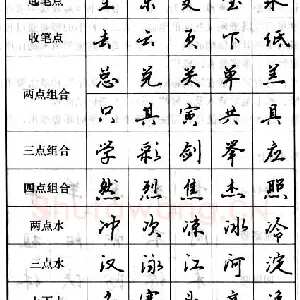 起笔点
收笔点 去 云 页 下 低
两点组合 总 兑 关 单 羔
只 其 寅 共 具
三点组合 学 彩 剑 举 应
四点组合 然 烈 焦 杰 照
两点水 冲 次 凉 冰 冷
三点水 汉 泳 江 河 淀